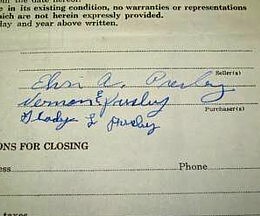 from the date hereof.
e in its existing condition, no warranties or representations
hich are not herein expressly provided.
day and year above written.
Elvis A. Presley
Seller(s)
Vernon E Presley
Purchaser(s)
Gladys L Presley
ONS FOR CLOSING
ess
Phone
taxes